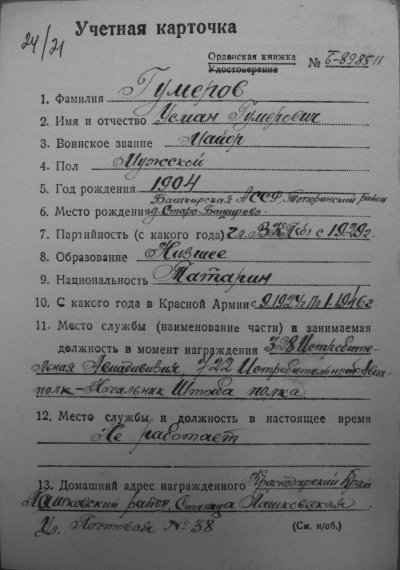 24/21
Учетная карточка
Орденская книжка
Удостоверение № Б-898511
1. Фамилия Гумеров
2. Имя и отчество Усман Гумерович
3. Воинское звание Майор
4. Пол Мужской
5. Год рождения 1904
Башкирская АССР,
6. Место рождения д. Старо Башарово
7. Партийность (с какого года) чл. ВКП(б) с 1929 г.
8. Образование Низшее
9. Национальность Татарин
10. С какого года в Красной Армии с 9.1927г По 1.1946г
11. Место службы (наименование части) и занимаемая
должность в момент награждения 328 Истребите-
льная Авиадивизия, 722 Истребительный Авиа-
полк – Начальник Штаба полка
12. Место службы и должность в настоящее время
Не работает
13. Домашний адрес награжденного Краснодарский Край
Пашковский район, Станица Пашковская
Ул. Постовая № 38 (См. н/об.)